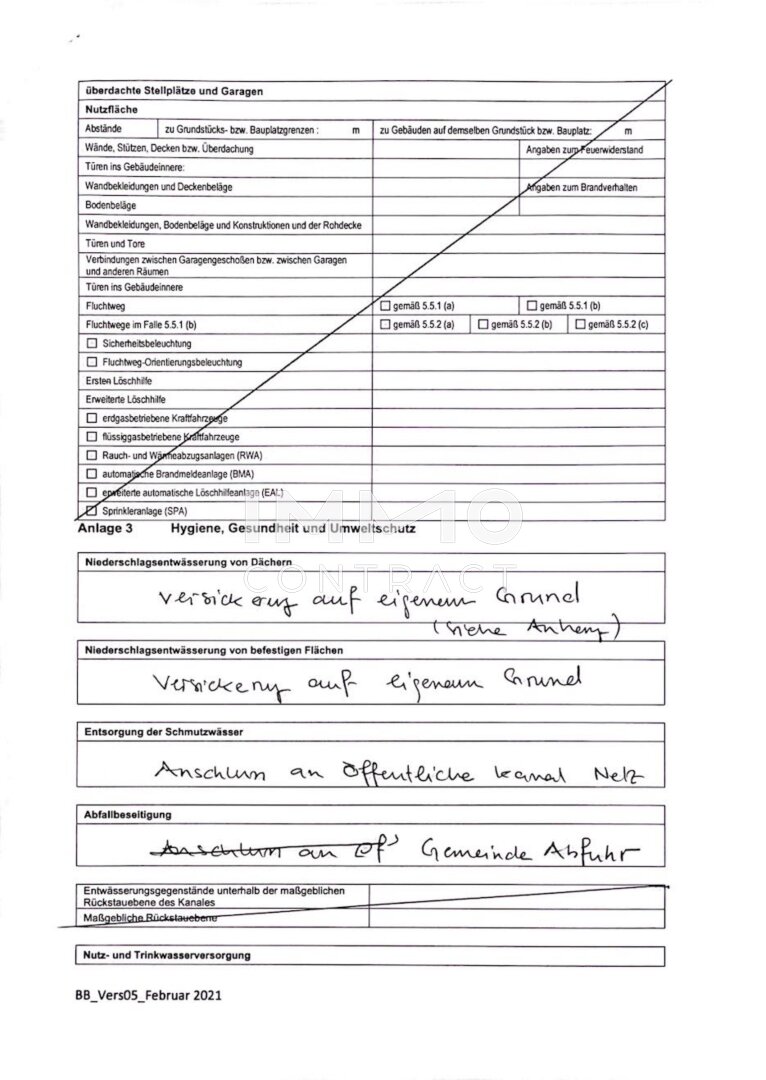 überdachte Stellplätze und Garagen
Nutzfläche
Abstände zu Grundstücks- bzw. Bauplatzgrenzen : m zu Gebäuden auf demselben Grundstück bzw. Bauplatz: m
Wände, Stützen, Decken bzw. Überdachung Angaben zum Feuerwiderstand
Türen ins Gebäudeinnere:
Wandbekleidungen und Deckenbeläge Angaben zum Brandverhalten
Bodenbeläge
Wandbekleidungen, Bodenbeläge und Konstruktionen und der Rohdecke
Türen und Tore
Verbindungen zwischen Garagengeschoßen bzw. zwischen Garagen
und anderen Räumen
Türen ins Gebäudeinnere
Fluchtweg ☐ gemäß 5.5.1 (a) ☐ gemäß 5.5.1 (b)
Fluchtwege im Falle 5.5.1 (b) ☐ gemäß 5.5.2 (a) ☐ gemäß 5.5.2 (b) ☐ gemäß 5.5.2 (c)
☐ Sicherheitsbeleuchtung
☐ Fluchtweg-Orientierungsbeleuchtung
Ersten Löschhilfe
Erweiterte Löschhilfe
☐ erdgasbetriebene Kraftfahrzeuge
☐ flüssiggasbetriebene Kraftfahrzeuge
☐ Rauch- und Wärmeabzugsanlagen (RWA)
☐ automatische Brandmeldeanlage (BMA)
☐ erweiterte automatische Löschhilfeanlage (EAL)
☐ Sprinkleranlage (SPA)
IMMO
CONTRACT
Anlage 3 Hygiene, Gesundheit und Umweltschutz
Niederschlagsentwässerung von Dächern
Versickerung auf eigenem Grund
(siehe Anhang)
Niederschlagsentwässerung von befestigen Flächen
Versickerung auf eigenem Grund
Entsorgung der Schmutzwässer
Anschluss an öffentliche Kanal Netz
Abfallbeseitigung
Anschluss an Öf Gemeinde Abfuhr
Entwässerungsgegenstände unterhalb der maßgeblichen
Rückstauebene des Kanales
Maßgebliche Rückstauebene
Nutz- und Trinkwasserversorgung
BB_Vers05_Februar 2021